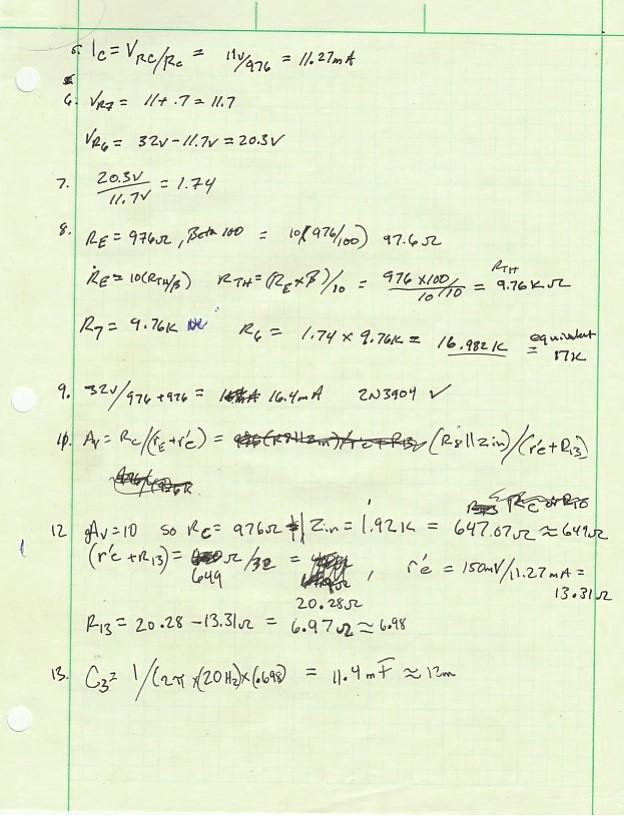 5. Ic = VRC/Rc = 11v/976 = 11.27mA
6. VR7 = 11+.7 = 11.7
VR6 = 32v-11.7v = 20.3v
7. 20.3v/11.7v = 1.74
8. RE = 976Ω, Beta 100 = 10(976/100) 97.6Ω
RE = 10(RTH/β) RTH = (RE×β)/10 = 976×100/10 /10 = RTH 9.76KΩ
R7 = 9.76K R6 = 1.74 × 9.76K = 16.982K = equivalent 17K
9. 32v/976+976 = 16.4mA 2N3904 ✓
10. Av = Rc/(rE+r'e) = (R8||Zin)/(r'e+R13)
12 Av=10 so Rc = 976Ω || Zin = 1.92K = 647.07Ω ≈ 649Ω
(r'e+R13) = 649Ω/32 = 20.28Ω, r'e = 150mV/11.27mA = 13.31Ω
R13 = 20.28-13.31Ω = 6.97Ω ≈ 6.98
13. C3 = 1/(2π×(20Hz)×(.698) = 11.4mF ≈ 12m